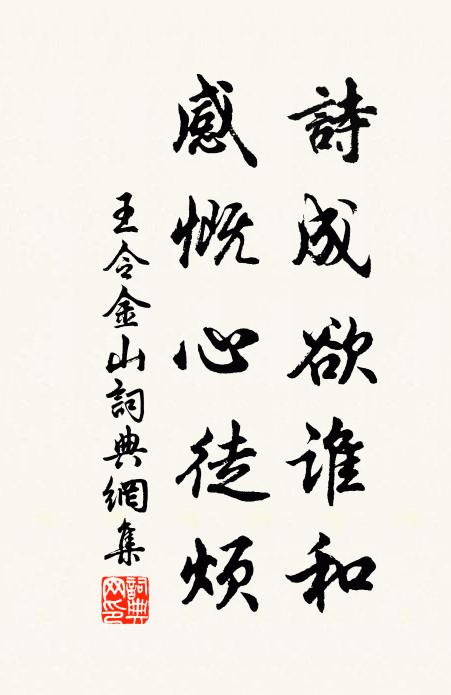 詩成欲誰和
感慨心徒煩
王令金山詞典網集
詞典
网印